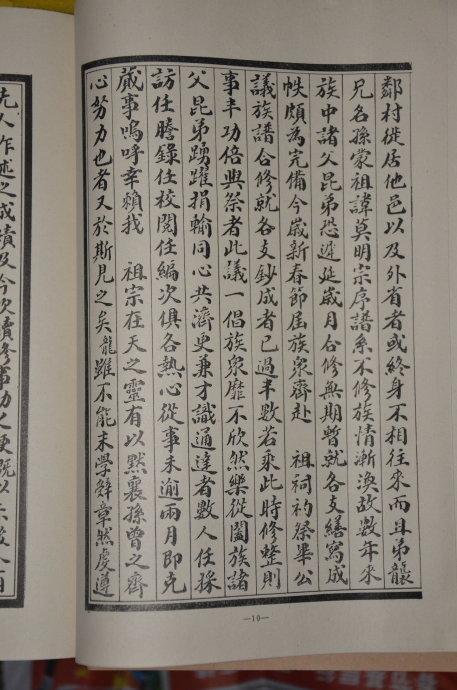 鄰村徙居他邑以及外省者或終身不相往來而且弟襲
兄名孫蒙祖諱莫明宗序譜系不修族情漸渙故數年來
族中諸父昆弟恐遲延歲月合修無期暫就各支繕寫成
帙頗為完備今歲新春節屆族衆齊赴 祖祠礿祭畢公
議族譜合修就各支鈔成者已過半數若乘此時修整則
事半功倍與祭者此議一倡族衆靡不欣然樂從闔族諸
父昆弟踴躍捐輸同心共濟更兼才識通達者數人任採
訪任謄錄任校閱任編次俱各熱心從事未逾兩月即克
蕆事嗚呼幸賴我 祖宗在天之靈有以默襄孫曾之齊
心努力也者又於斯見之矣龍雖不能末學辭章然處遵
—10—
先人作述之成績及今次續修事功